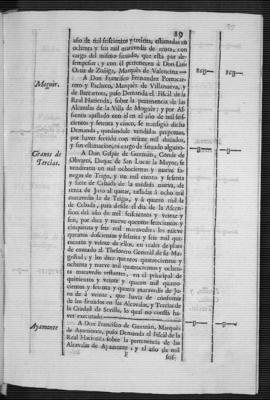 39
año de mil seiscientos y treinta, estimadas en
ochenta y seis mil maravedis de renta, con
cargo del mismo situado, que està por de-
sempeñar; y son el pertenecen à Don Luis
Ortiz de Zuñiga, Marquès de Valencina.
Moguer.
A Don Francisco Fernandez Portocar-
rero y Pacheco, Marquès de Villanueva, y
de Barcarrota, puso Demanda el Fiscal de la
Real Hacienda, sobre la pertenencia de las
Alcavalas de la Villa de Moguer; y por As-
siento ajustado con el en el año de mil seis-
cientos y setenta y cinco, se transigiò dicha
Demanda, quedandole vendidas perpetuas,
por haver servido con veinte mil ducados,
y sin estimacion, ni cargo de situado alguno.
Granos de
Tercias.
A Don Gaspar de Guzmàn, Conde de
Olivares, Duque de San Lucar la Mayor, se
vendieron un mil ochocientas y nueve fa-
negas de Trigo, y un mil ciento y setenta
y siete de Cebada de la medida nueva, de
renta de Juro al quitar, tassadas à ocho mil
maravedis la de Trigo, y à quatro mil la
de Cebada, para desde el dia de la Ascen-
sion del año de mil seiscientos y veinte y
seis, por diez y nueve quentos seiscientos y
cinquenta y seis mil maravedis: los nueve
quentos doscientos y setenta y seis mil qui-
nientos y veinte de ellos, en reales de plata
de contado al Thesorero General de su Ma-
gestad; y los diez quentos quatrocientos y
ochenta y nueve mil quatrocientos y ochen-
ta maravedis restantes, en el principal de
quinientos y veinte y quatro mil quatro-
cientos y setenta y quatro maravedis de Ju-
ros de à veinte, que havia de consumir
de los situados en las Alcavalas, y Tercias de
la Ciudad de Sevilla, lo qual no consta ha-
ver executado.
Ayamonte
A Don Francisco de Guzmàn, Marquès
de Ayamonte, puso Demanda el Fiscal de la
Real Hacienda sobre la pertenencia de las
Alcavalas de Ayamonte, y el año de mil
seis-